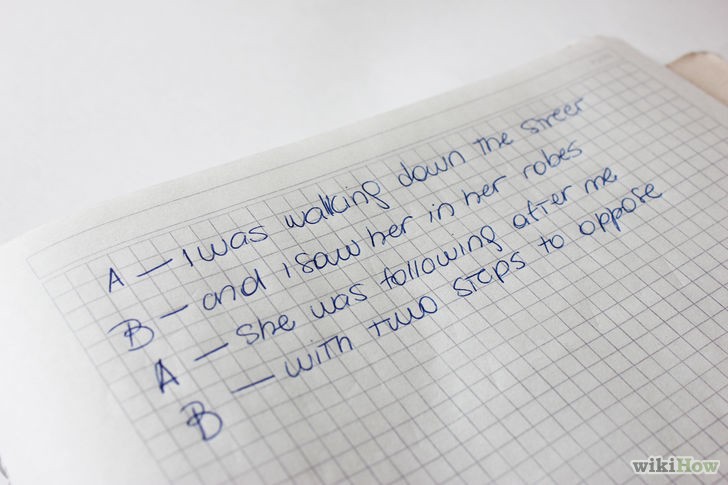 A – I was walking down the street
B – and I saw her in her robes
A – She was following after me
B – with two steps to oppose
wikiHow